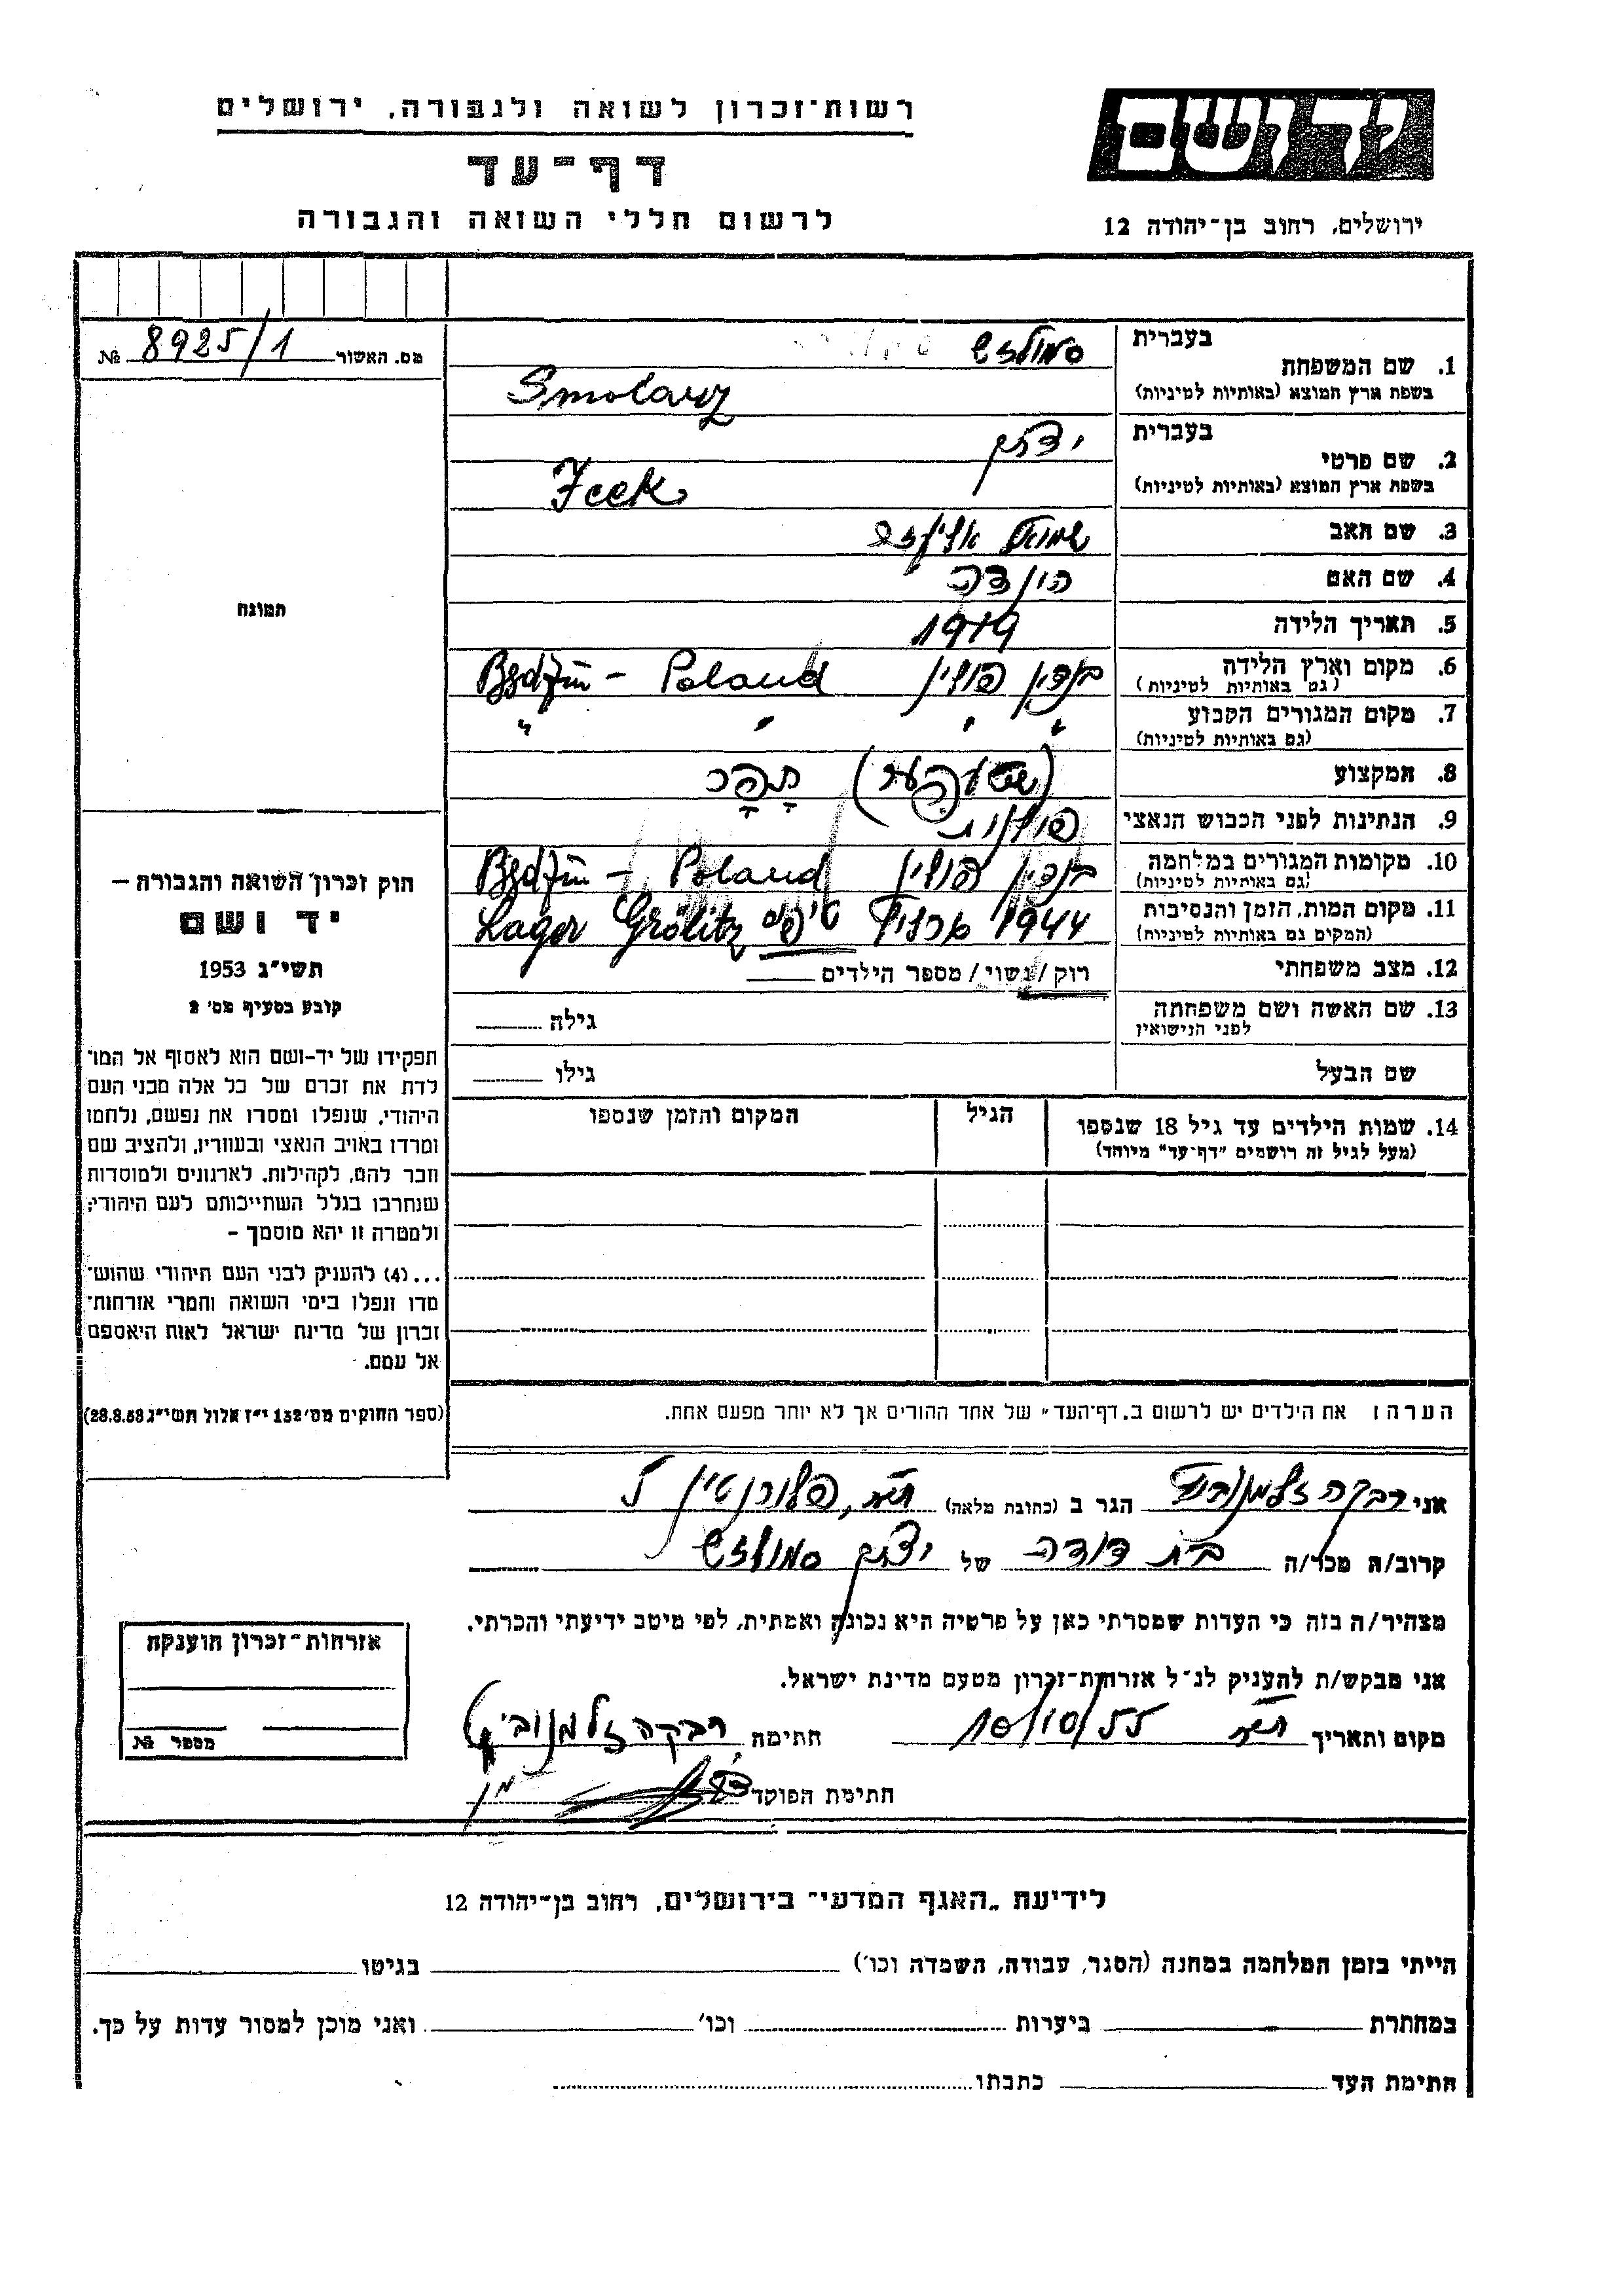 רשות־זכרון לשואה ולגבורה, ירושלים
יד ושם
דף־עד
לרשום חללי השואה והגבורה
ירושלים, רחוב בן־יהודה 12
מס. האשור 8925/1 №
בעברית
1. שם המשפחה
בשפת ארץ המוצא (באותיות לטיניות)
Smolarz
בעברית
2. שם פרטי יצחק
בשפת ארץ המוצא (באותיות לטיניות)
Icek
3. שם האב שמואל
4. שם האם הינדה
5. תאריך הלידה 1919
6. מקום וארץ הלידה בנדין פולין Bẹdzin - Poland
(גם באותיות לטיניות)
7. מקום המגורים הקבוע " " " "
(גם באותיות לטיניות)
8. המקצוע
9. הנתינות לפני הכבוש הנאצי פולנית
10. מקומות המגורים במלחמה בנדין פולין Bẹdzin - Poland
(גם באותיות לטיניות)
11. מקום המות, הזמן והנסיבות 1944 טיפוס Lager Grölitz
(המקום גם באותיות לטיניות)
12. מצב משפחתי רוק / נשוי / מספר הילדים
13. שם האשה ושם משפחתה גילה
לפני הנישואין
שם הבעל גילו
14. שמות הילדים עד גיל 18 שנספו הגיל המקום והזמן שנספו
(מעל לגיל זה רושמים "דף־עד" מיוחד)
תמונה
חוק זכרון השואה והגבורה –
יד ושם
תשי"ג 1953
קובע בסעיף מס' 2
תפקידו של יד-ושם הוא לאסוף אל המו־
לדת את זכרם של כל אלה מבני העם
היהודי, שנפלו ומסרו את נפשם, נלחמו
ומרדו באויב הנאצי ובעוזריו, ולהציב שם
וזכר להם, לקהילות, לארגונים ולמוסדות
שנחרבו בגלל השתייכותם לעם היהודי;
ולמטרה זו יהא מוסמך –
...(4) להעניק לבני העם היהודי שהוש־
מדו ונפלו בימי השואה והמרי אזרחות־
זכרון של מדינת ישראל לאות היאספם
אל עמם.
(ספר החוקים מס' 132 י"ז אלול תשי"ג 28.8.53)
הערה: את הילדים יש לרשום ב„דף־העד" של אחד ההורים אך לא יותר מפעם אחת.
אני רבקה זלמנוביץ הגר ב (כתובת מלאה) ת"א, פלורנטין 5
קרוב/ה מכר/ה בת דודה של יצחק
מצהיר/ה בזה כי העדות שמסרתי כאן על פרטיה היא נכונה ואמתית, לפי מיטב ידיעתי והכרתי.
אני מבקש/ת להעניק לנ"ל אזרחות־זכרון מטעם מדינת ישראל.
מקום ותאריך ת"א 10/10/55 חתימה רבקה זלמנוביץ
חתימת הפוקד
אזרחות־זכרון הוענקה
מספר №
לידיעת „האגף המדעי" בירושלים, רחוב בן־יהודה 12
הייתי בזמן המלחמה במחנה (הסגר, עבודה, השמדה וכו') בגיטו
במחתרת ביערות וכו' ואני מוכן למסור עדות על כך.
חתימת העד כתבתו